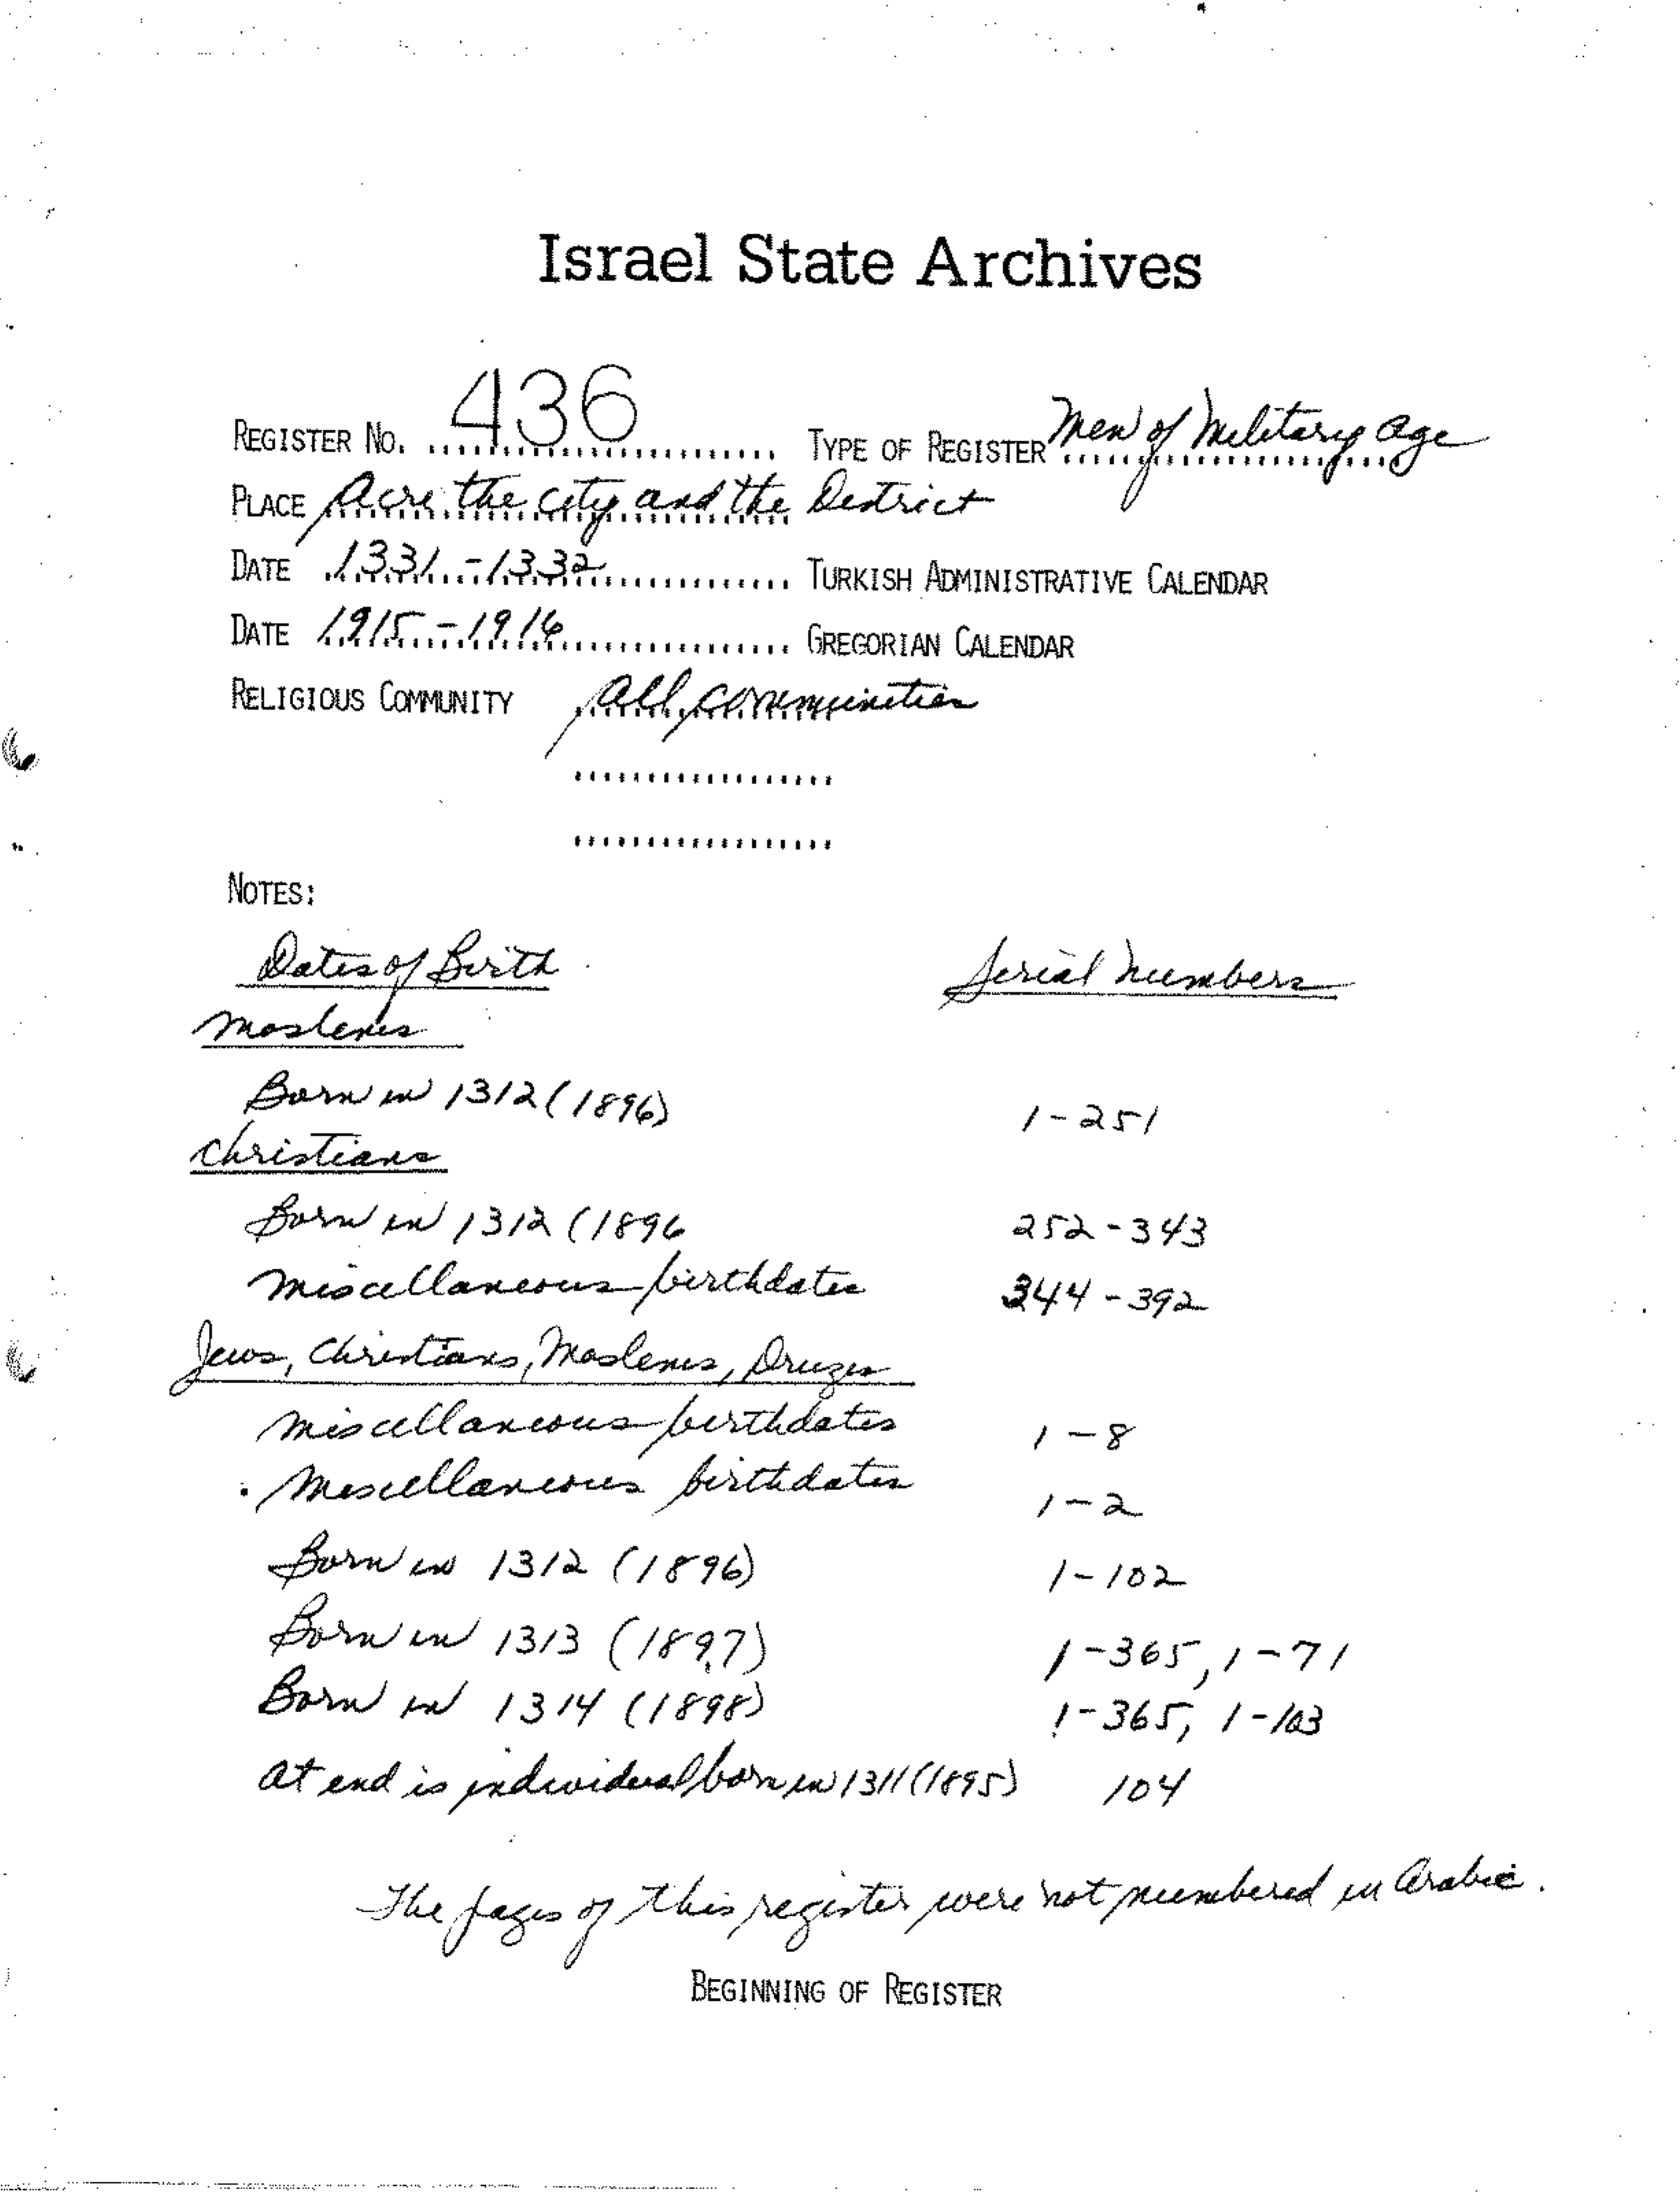 Israel State Archives
REGISTER NO. 436 TYPE OF REGISTER Men of Military Age
PLACE Acre the city and the District
DATE 1331-1332 TURKISH ADMINISTRATIVE CALENDAR
DATE 1915-1916 GREGORIAN CALENDAR
RELIGIOUS COMMUNITY All communities
NOTES:
Dates of Birth Serial Numbers
Moslems
Born in 1312 (1896) 1-251
Christians
Born in 1312 (1896 252-343
Miscellaneous birthdates 344-392
Jews, Christians, Moslems, Druzes
Miscellaneous birthdates 1-8
Miscellaneous birthdates 1-2
Born in 1312 (1896) 1-102
Born in 1313 (1897) 1-365, 1-71
Born in 1314 (1898) 1-365, 1-103
At end is individual born in 1311 (1895) 104
The pages of this register were not numbered in Arabic.
BEGINNING OF REGISTER